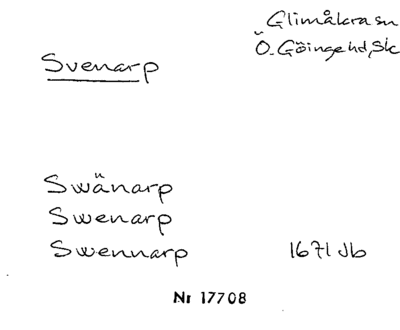 Glimåkra sn
Svenarp
Ö. Göinge hd, Sk
Swänarp
Swenarp
Swennarp 1671 Jb
Nr 17708